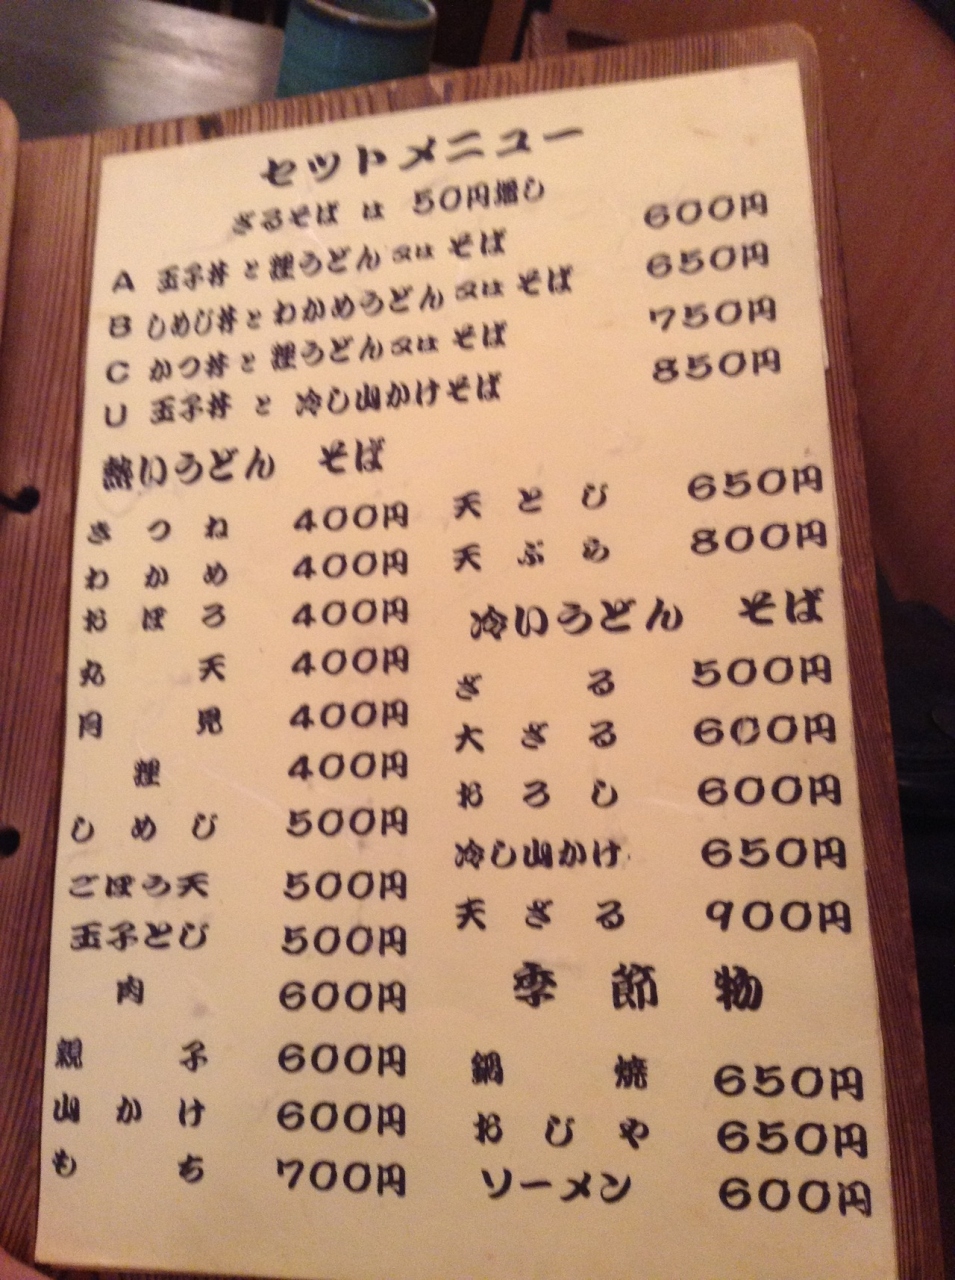 セットメニュー
ざるそば は 50円増し
A 玉子丼と狸うどん又はそば 600円
B しめじ丼とわかめうどん又はそば 650円
C かつ丼と狸うどん又はそば 750円
U 玉子丼と冷し山かけそば 850円
熱いうどん そば
きつね 400円
わかめ 400円
おぼろ 400円
丸天 400円
月見 400円
狸 400円
しめじ 500円
ごぼう天 500円
玉子とじ 500円
肉 600円
親子 600円
山かけ 600円
もち 700円
天とじ 650円
天ぷら 800円
冷いうどん そば
ざる 500円
大ざる 600円
おろし 600円
冷し山かけ 650円
天ざる 900円
季節物
鍋焼 650円
おじや 650円
ソーメン 600円